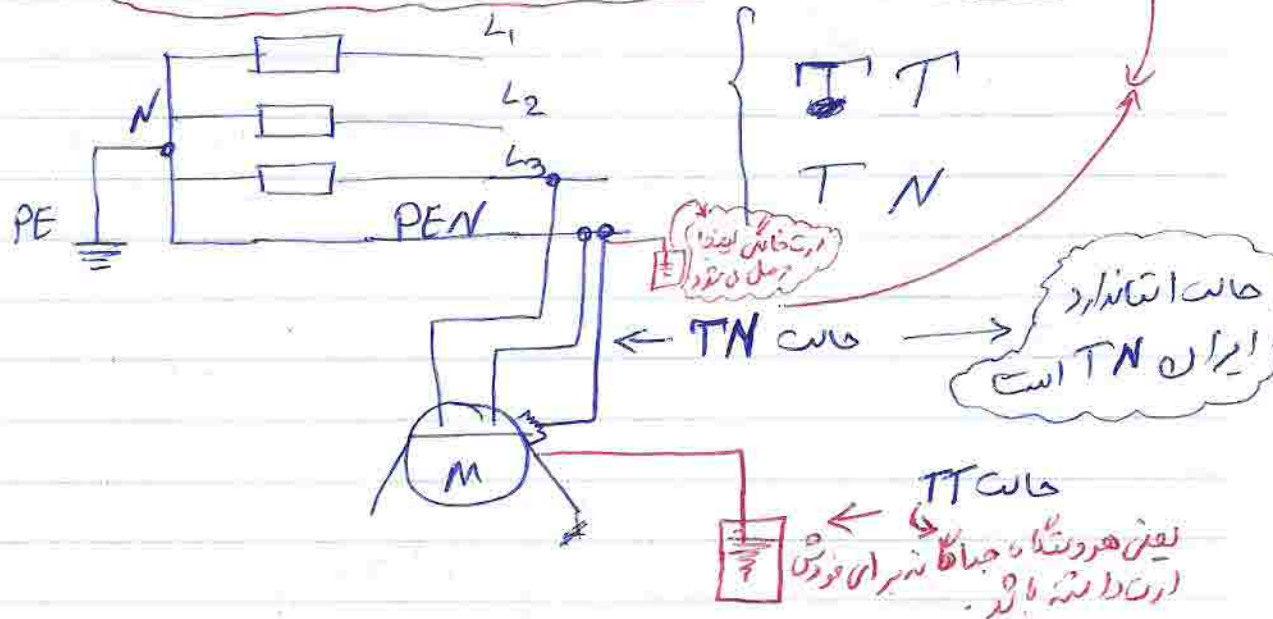 L1
L2
L3
N
PE
PEN
T T
T N
ارت خانگی اینجا
وصل می شود
حالت TN
حالت استاندارد
ایران TN است
M
حالت TT
یعنی هر دستگاه جداگانه برای خودش
ارت داشته باشد.